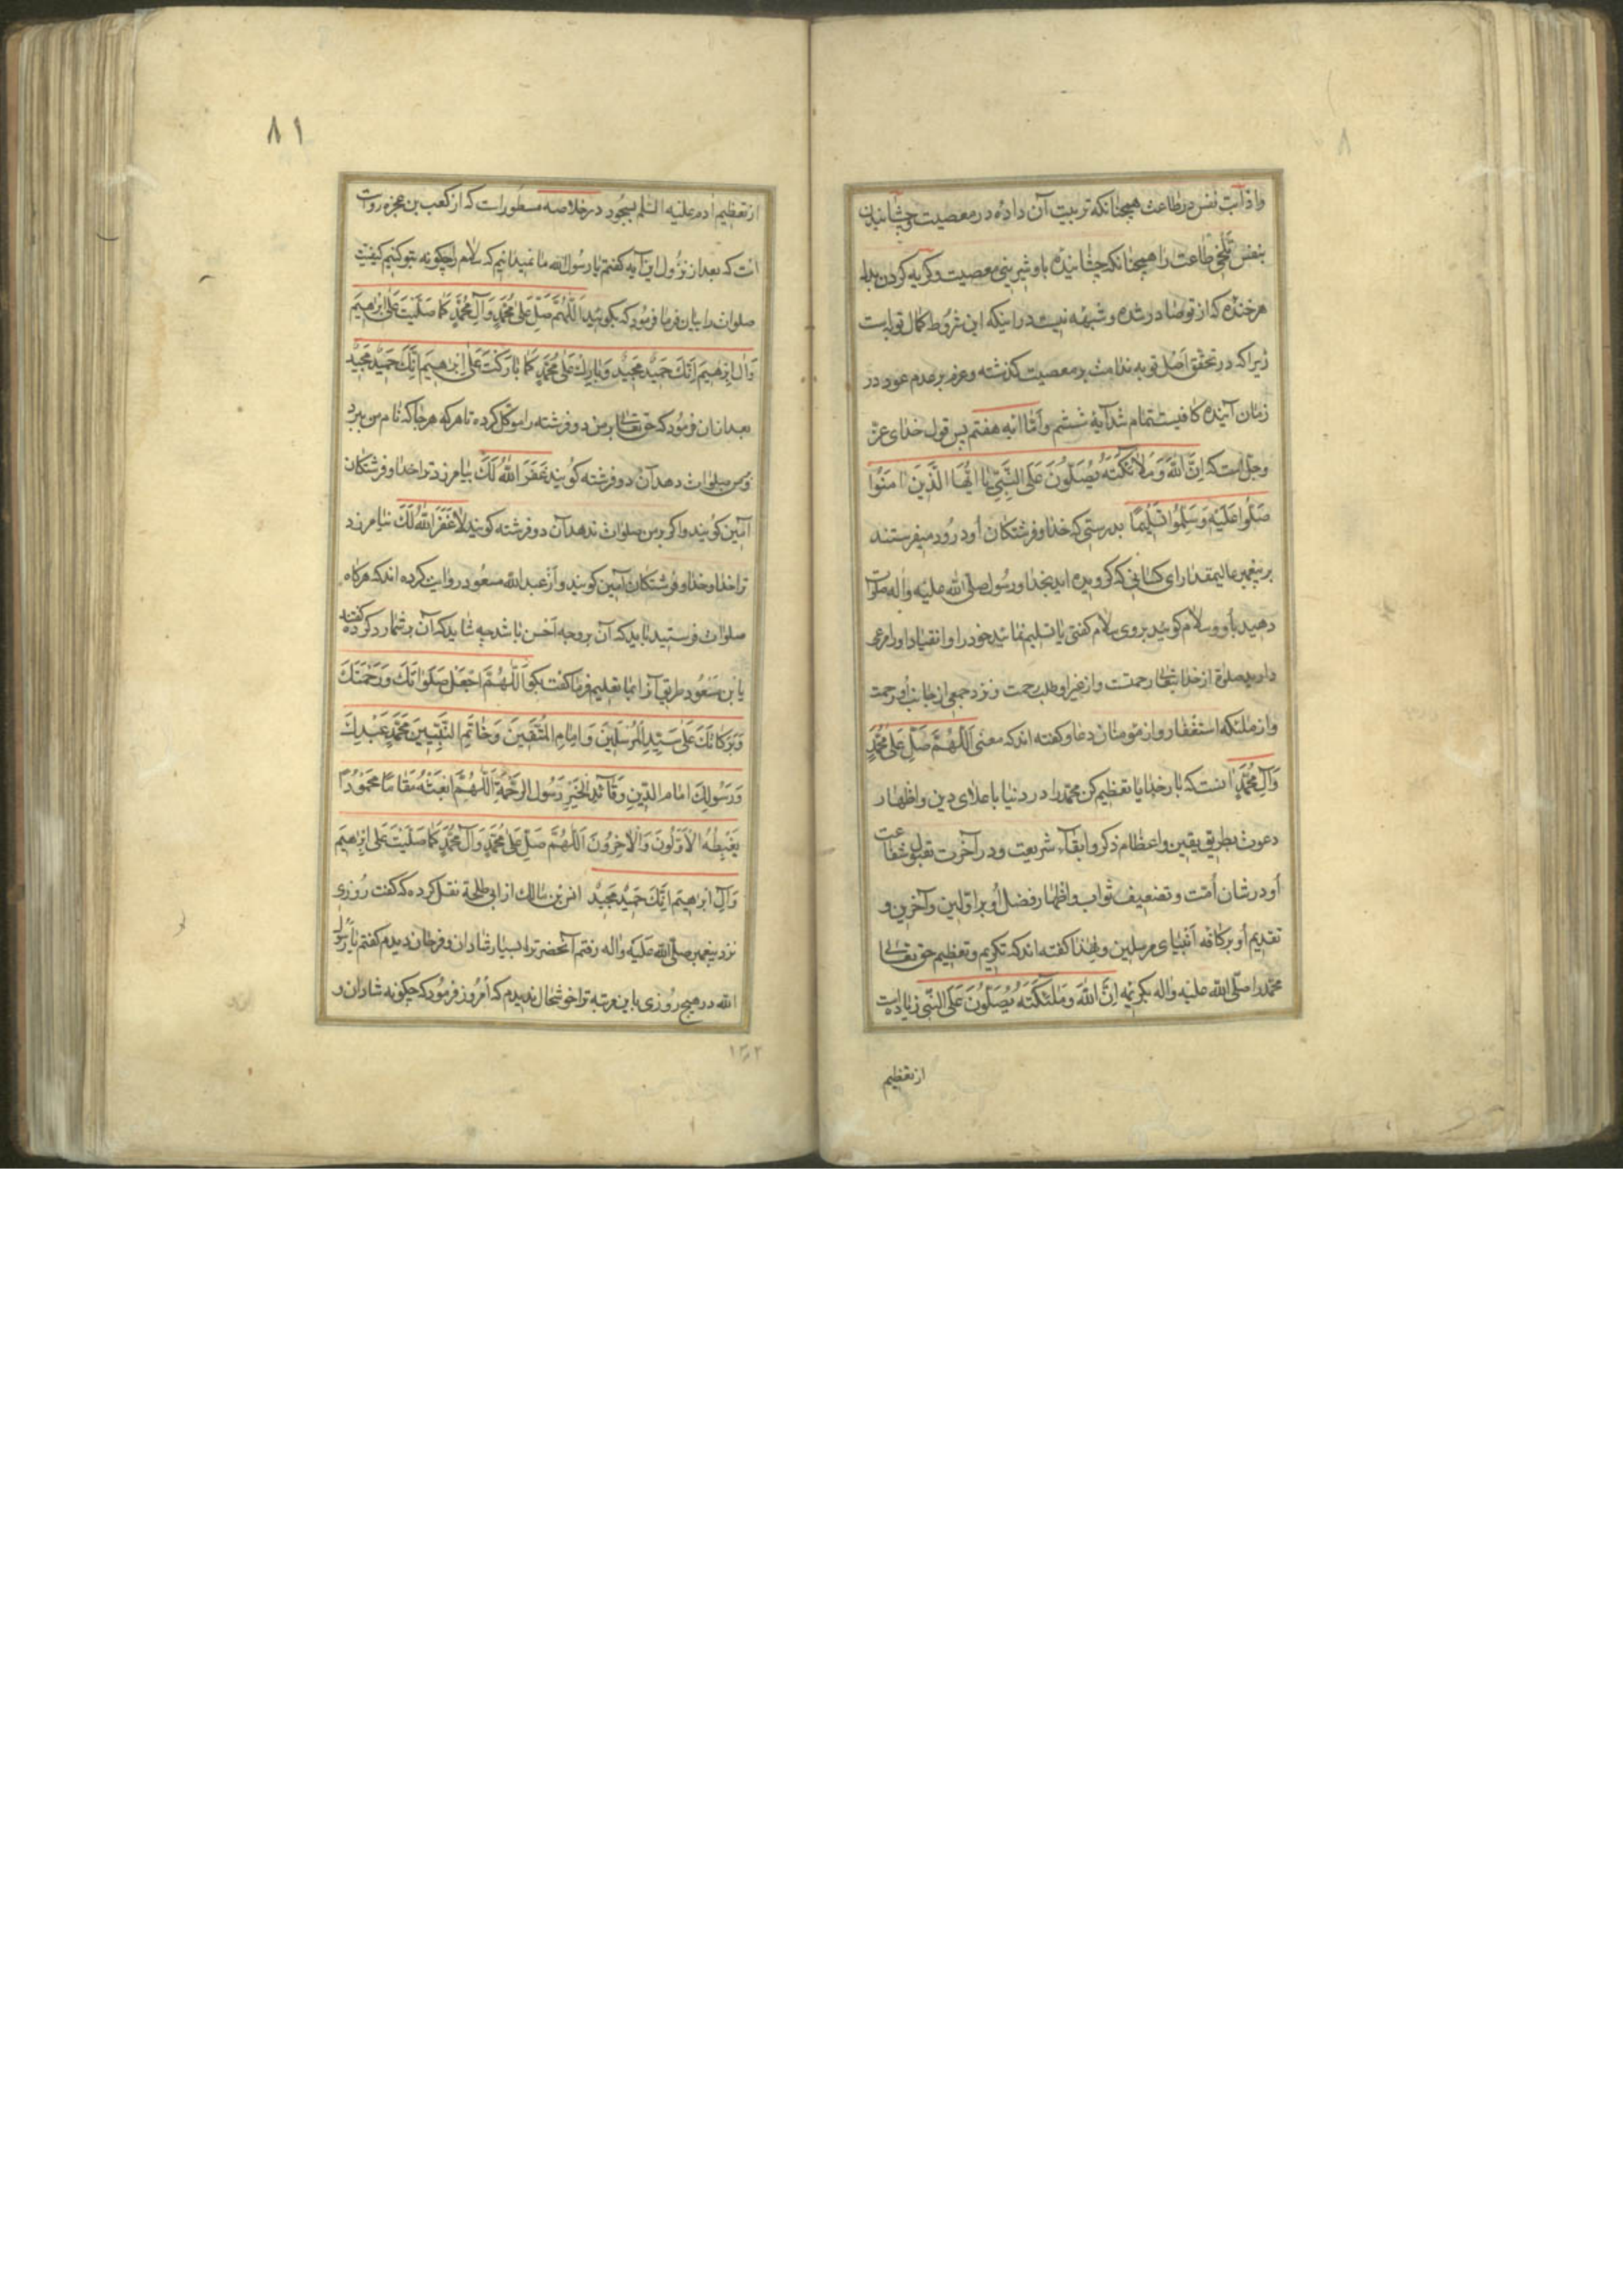 ۸
واذابت نفس در طاعت همچنانکه تربیت آن داده در معصیت و چشانیدن
بنفس تلخی طاعت را همچنانکه چشانیده باو شیرینی معصیت و کریه کردن بدل
هر خنده که از تو صادر شده و شبهه نیست در اینکه این شروط کمال توبه است
زیرا که در تحقق اصل توبه ندامت بر معصیت کذشته و عزم بر عدم عود در
زمان آینده کافیست تمام شد آیهٔ ششم و اما آیه هفتم پس قول خدای عزّ
وجلّ است که اِنَّ اللّٰهَ وَمَلٰائِکَتَهُ یُصَلُّونَ عَلَی النَّبِیِّ یٰا اَیُّهَا الَّذینَ اٰمَنُوا
صَلُّوا عَلَیْهِ وَسَلِّمُوا تَسْلیمًا بدرستی که خدا و فرشتکان او درود میفرستند
بر پیغمبر عالیمقدار ای کسانی که کرویده اید بخدا و رسول صلّی اللّٰه علیه واٰله صلوات
دهید باو و سلام کوئید بر وی سلام کفتنی یا تسلیم نمائید خود را و انقیاد اوامر مرعی
دارید صلوة از خدایتعالی رحمتست و از غیر او طلب رحمت و نزد جمعی از جانب او رحمت
و از ملئکه استغفار و از مؤمنان دعا و کفته اند که معنی اَللّٰهُمَّ صَلِّ عَلٰی مُحَمَّدٍ
وَآلِ مُحَمَّدٍ اینست که بار خدایا تعظیم کن محمّد را در دنیا باعلای دین و اظهار
دعوت بطریق یقین و اعظام ذکر و ابقآء شریعت و در آخرت بقبول شفاعت
او در شان اُمّت و تضعیف ثواب و اظهار فضل او بر اوّلین و آخرین و
تقدیم او بر کافه انبیای مرسلین و لهذا کفته اند که تکریم و تعظیم حق تعالی
محمّد را صلّی اللّٰه علیه واٰله بکریمه اِنَّ اللّٰهَ وَمَلٰئِکَتَهُ یُصَلُّونَ عَلَی النَّبی زیاده است
از تعظیم
۸۱
از تعظیم اٰدم علیه السّلم بسجود در خلاصه مسطور است که از کعب بن عجزه روایت
است که بعد از نزول این آیه کفتم یا رسول اللّٰه ما نمیدانیم که سلام را چکونه بتو کنیم کیفیت
صلوات را بیان فرما فرمود که بکوئید اَللّٰهُمَّ صَلِّ عَلٰی مُحَمَّدٍ وَآلِ مُحَمَّدٍ کَمٰا صَلَّیْتَ عَلٰی اِبْرٰهیمَ
وَاٰلِ اِبْرٰهیمَ اِنَّکَ حَمیدٌ مَجیدٌ وَبٰارِکْ عَلٰی مُحَمَّدٍ کَمٰا بٰارَکْتَ عَلٰی اِبْرٰهیمَ اِنَّکَ حَمیدٌ مَجیدٌ
بعد از ان فرمود که حق تعالی بر من دو فرشته را موکّل کرده تا هر که هر جا که نام من برد
و بمن صلوات دهد آن دو فرشته کویند غَفَرَ اللّٰهُ لَکَ بیامرزد ترا خدا و فرشتکان
آمین کویند و اکر بر من صلوات ندهد آن دو فرشته کویند لٰا غَفَرَ اللّٰهُ لَکَ نیامرزد
ترا خدا و خدا و فرشتکان آمین کویند و از عبد اللّٰه مسعود روایت کرده اند که هرکاه
صلوات فرستید باید که آن بر وجه احسن باشد چه شاید که آن بر شما رد کرده کفتند
یا بن مسعود طریق آنرا بما تعلیم فرما کفت بکو اَللّٰهُمَّ اجْعَلْ صَلَوٰاتِکَ وَرَحْمَتَکَ
وَبَرَکٰاتِکَ عَلٰی سَیِّدِ الْمُرْسَلینَ وَاِمٰامِ الْمُتَّقینَ وَخٰاتَمِ النَّبِیّینَ مُحَمَّدٍ عَبْدِکَ
وَرَسُولِکَ اِمٰامِ الدّینِ وَقٰائِدِ الْخَیْرِ رَسُولِ الرَّحْمَةِ اَللّٰهُمَّ ابْعَثْهُ مَقٰامًا مَحْمُودًا
یَغْبِطُهُ الْاَوَّلُونَ وَالْاٰخِرُونَ اَللّٰهُمَّ صَلِّ عَلٰی مُحَمَّدٍ وَآلِ مُحَمَّدٍ کَمٰا صَلَّیْتَ عَلٰی اِبْرٰهیمَ
وَآلِ اِبْرٰهیمَ اِنَّکَ حَمیدٌ مَجیدٌ انس بن مالک از ابی طلحة نقل کرده که کفت روزی
نزد پیغمبر صلّی اللّٰه علیه واٰله رفتم آنحضرترا بسیار شادان و فرحان دیدم کفتم یا رسول
اللّٰه در هیچ روزی باین مرتبه ترا خوشحال ندیدم که امروز فرمود که چکونه شادان و